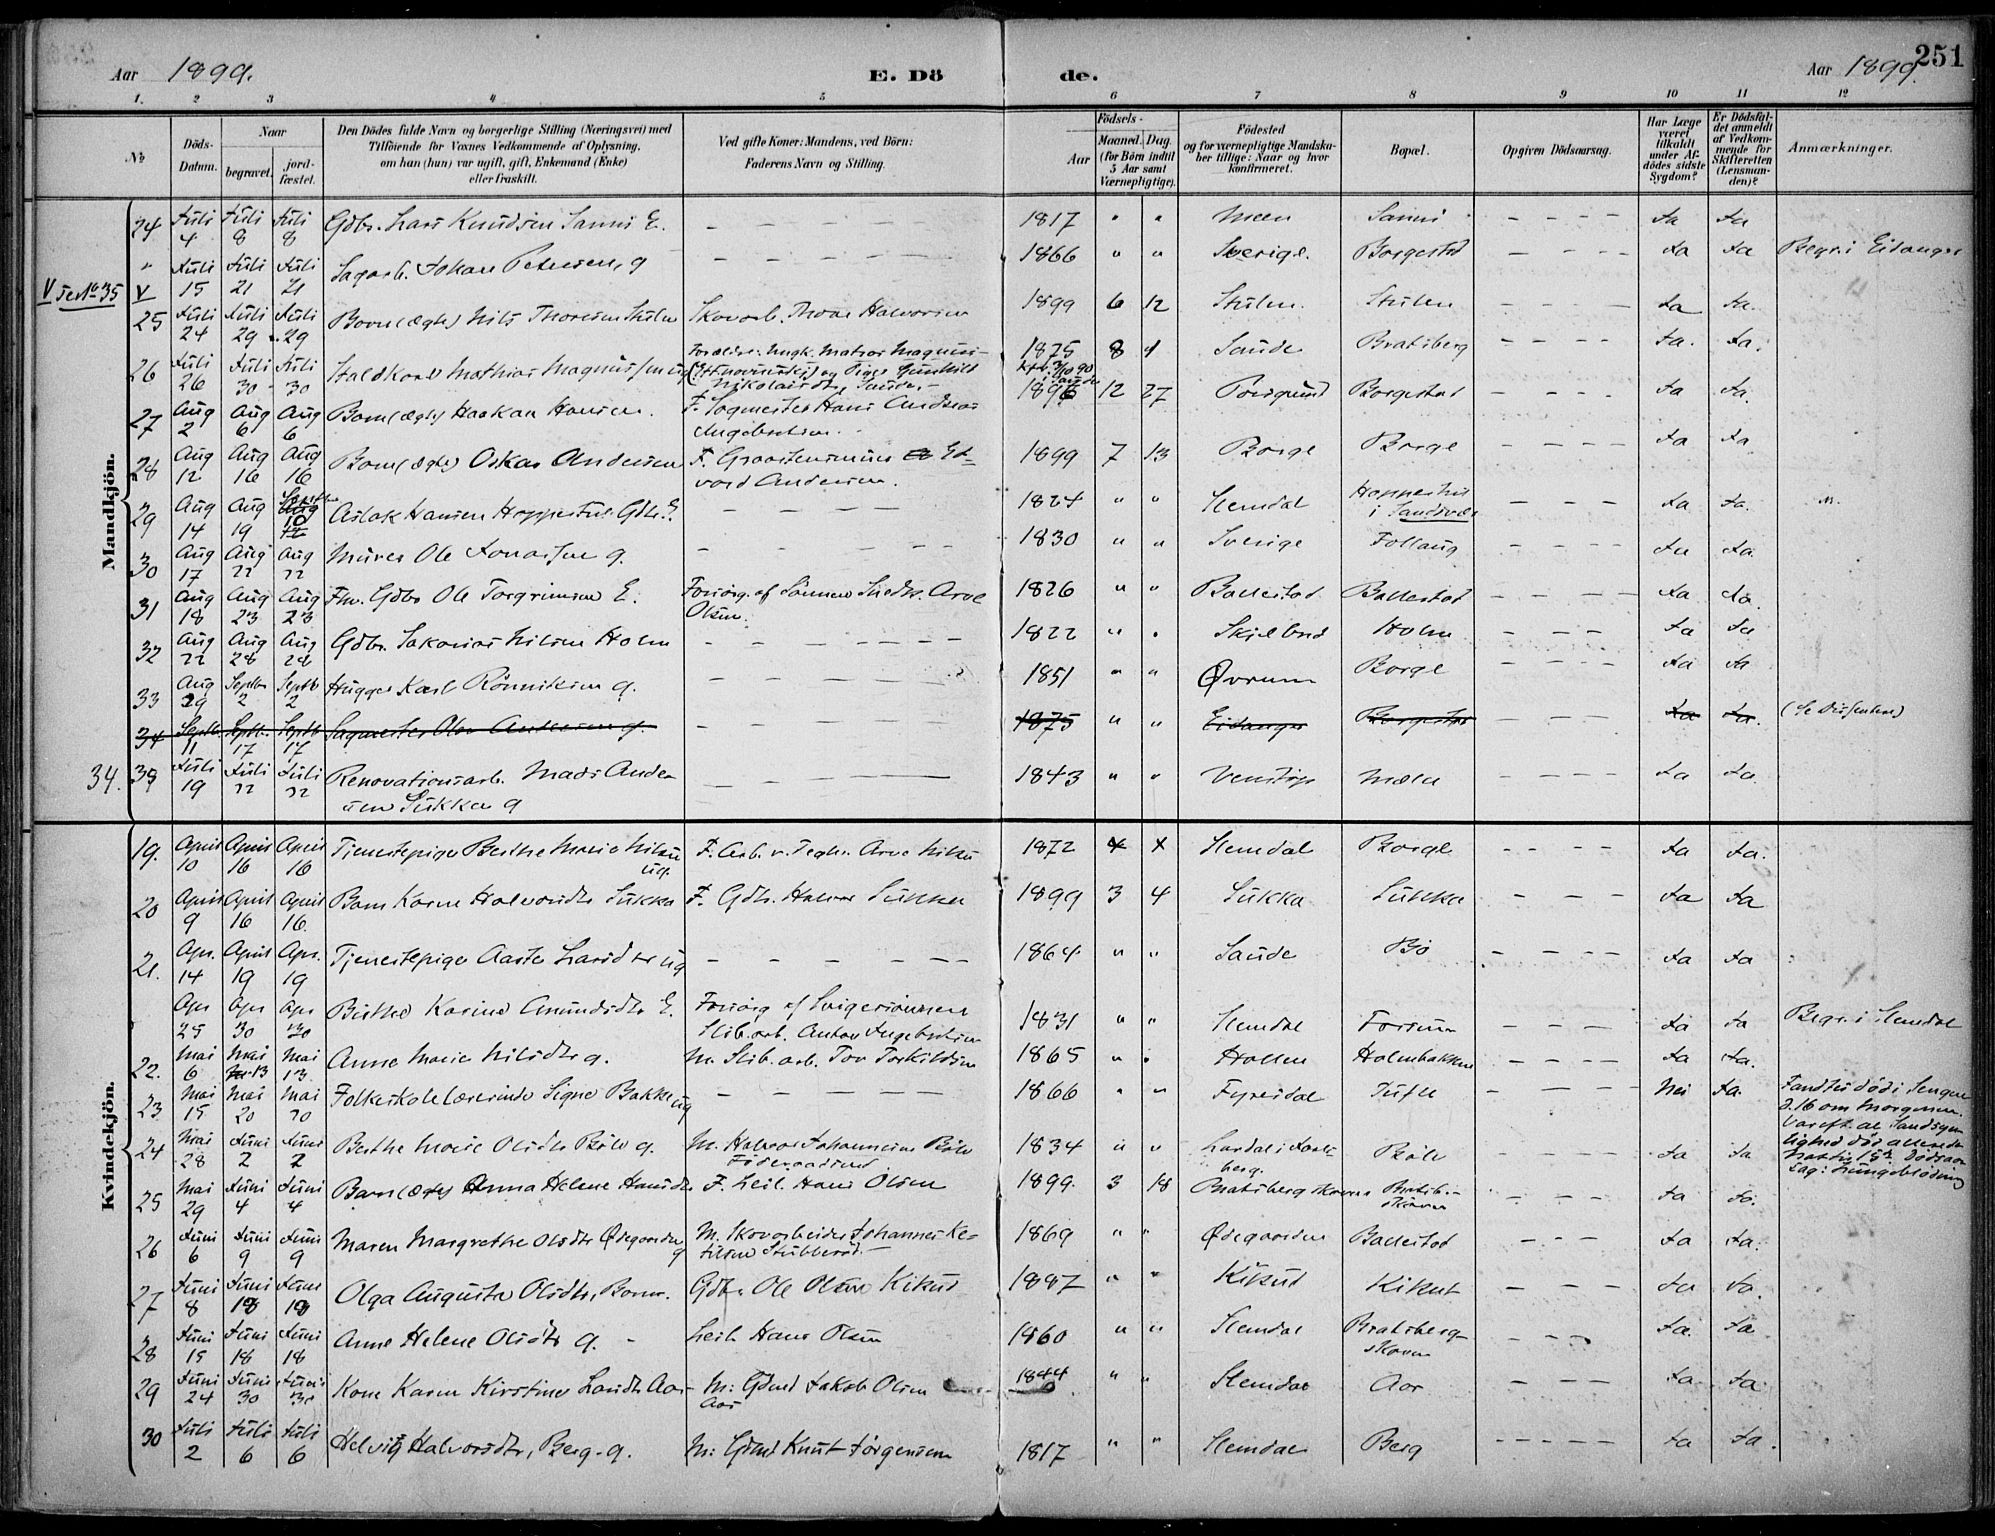 251
Aar 1899.
E. Dö
de.
Aar 1899.
1. 2 3 4 5 6 7 8 9 10 11 12
№
Döds-Datum.
Naar
begravet.
jord-fæstet.
Den Dödes fulde Navn og borgerlige Stilling (Næringsvei) med
Tilföiende for Voxnes Vedkommende af Oplysning,
om han (hun) var ugift, gift, Enkemand (Enke)
eller fraskilt.
Ved gifte Koner: Mandens, ved Börn:
Faderens Navn og Stilling.
Födsels-
Aar
Maaned. Dag.
(for Börn indtil
5 Aar samt
Værnepligtige).
Födested
og for værnepligtige Mandska-
ber tillige: Naar og hvor
konfirmeret.
Bopæl.
Opgiven Dödsaarsag.
Har Læge
været
tilkaldt
under Af-
dödes sidste
Sygdom?
Er Dödsfal-
det anmeldt
af Vedkom-
mende for
Skifteretten
(Lensman-
den)?
Anmærkninger.
Mandkjön.
24 Juli 4 Juli 8 Juli 8 Gdbr. Lars Knudsen Sanni E. 1817 " " Meen Sanni Ja Ja
" Juli 15 Juli 21 Juli 21 Sagarb. Johan Petersen, g 1866 " " Sverige Borgestad Ja Ja Begr. i Eidanger
V
25 Juli 24 Juli 29 Juli 29 Barn (ægte) Nils Thoresen Stulen Skovarb. Thore Halvorsen 1899 6 12 Stulen Stulen Ja Ja.
26 Juli 26 Juli 30 Juli 30 Staldkarl Mathias Magnussen ug Nikolaisdtr, Saude 1875 8 4 Saude Bratsberg Ja. Ja.
27 Aug 2 Aug 6 Aug 6 Barn (ægte) Haakon Hansen. F. Sagmester Hans Andreas Engebretsen. 1896 12 27 Porsgrund Borgestad Ja Ja.
28 Aug 12 Aug 16 Aug 16 Barn (ægte) Oskar Andersen F. Graastensminer Edvard Andersen. 1899 7 13 Borge Borge Ja Ja
29 Aug 14 Aug 19 Septbr 10 Aslak Hansen Hoppestul Gdbr. E. 1824 " " Slemdal Hoppestul i Ja Ja.
30 Aug 17 Aug 22 Aug 22 Murer Ole Jonassen g. 1830 " " Sverige Follaug Ja Ja.
31 Aug 18 Aug 23 Aug 23 Fhv. Gdbr Ole Torgrimsen E. Forsörg. af Sönnen Snedk. Arve Olsen. 1826 " " Ballestad Ballestad Ja Ja.
32 Aug 22 Aug 28 Aug 28 Gdbr. Sakarias Nilsen Holm 1822 " " Skjelbred Holm Ja Ja
33 Aug 29 Septbr 2 Septbr 2 Hugger Karl Rönniksen g. 1851 " " Øvrum Borge Ja Ja
34 Septb. 11 Septb. 17 Septb 17 Sagmester Olav Andersen g. 1875 " " Eidanger Borgestad Ja Ja.
34. 35 Juli 19 Juli 22 Juli 22 Renovationsarb. Mads Andersen Sukka g 1843 " " Venstöp Mæla Ja Ja.
Kvindekjön.
19. April 10 April 16 April 16 Tjenestepige Berthe Marie Nilsen ug. F. Arb. v. Teglv. Arve Nilsen 1872 Slemdal Borge Ja Ja.
20 April 9 April 16 April 16. Barn Karen Halvorsdtr Sukka F. Gdbr. Halvor Sukka 1899 3 4 Sukka Sukka Ja Ja
21. Apr. 14 April 19 Apr. 19 Tjenestepige Aaste Larsdtr ug 1864 " " Saude Bö Ja Ja
Apr 25 Apr 30 Apr 30 Berthe Karine Amundsdtr E. Forsörg af Svigersönnen Slib.arb. Anton Engebretsen 1831 " " Slemdal Fossum Ja Ja Begr. i Slemdal
22. Mai 6 Mai 13 Mai 13 Anne Marie Nilsdtr g. M. Slib. arb. Tor Torkildsen 1865 " " Hollen Holmbakken Ja Ja.
23 Mai 15 Mai 20 Mai 20 Folkeskolelærerinde Signe Bakke ug 1866 " " Fyresdal Tufte Nei Ja. Fandtes död i Sengen
d. 16 om Morgenen.
24 Mai 28 Juni 2 Juni 2 Berthe Marie Olsdtr Böle g. M. Halvor Johannesen Böle Föderaadsmd 1834 " " Böle Ja Ja
25 Mai 29 Juni 4 Juni 4 Barn (ægte) Anna Helene Hansdtr F. Leil. Hans Olsen 1899. 3 18 Bratsbergskoven Ja Ja.
26 Juni 6 Juni 9 Juni 9 Maren Margrethe Olsdtr Ødegaarden g M. Skovarbeider Johannes Ketilsen Stubberöd 1869 " " Ødegaarden Ballestad Ja Ja.
27 Juni 8 Juni 18 Juni 18 Olga Augusta Olsdtr, Barn. Gdbr Ole Olsen Kikud 1887 " " Kikud Kikut Ja Ja.
28 Juni 15 Juni 18 Juni 18 Anne Helene Olsdtr g. Leil Hans Olsen 1860 " " Slemdal Bratsbergskoven Ja. Ja
29 Juni 24 Juni 30 Juni 30 Kone Karen Kirstine Larsdtr Aas M: Gdmd Jakob Olsen Aas 1844 " " Slemdal Aas Ja Ja
30 Juli 2 Juli 6 Juli 6 Helvig Halvorsdtr, Berg. g. M: Gdmd Knut Jörgensen 1817 " " Slemdal Berg Ja Ja.